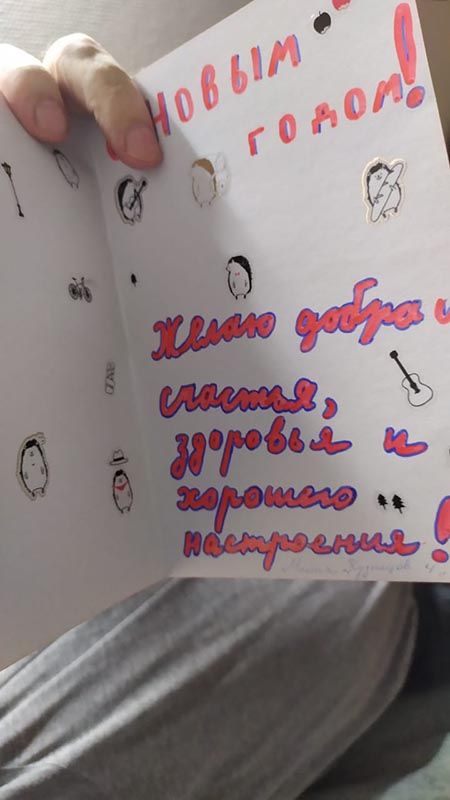 НОВЫМ
ГОДОМ!
Желаю добра и
счастья,
здоровья и
хорошего
настроения!